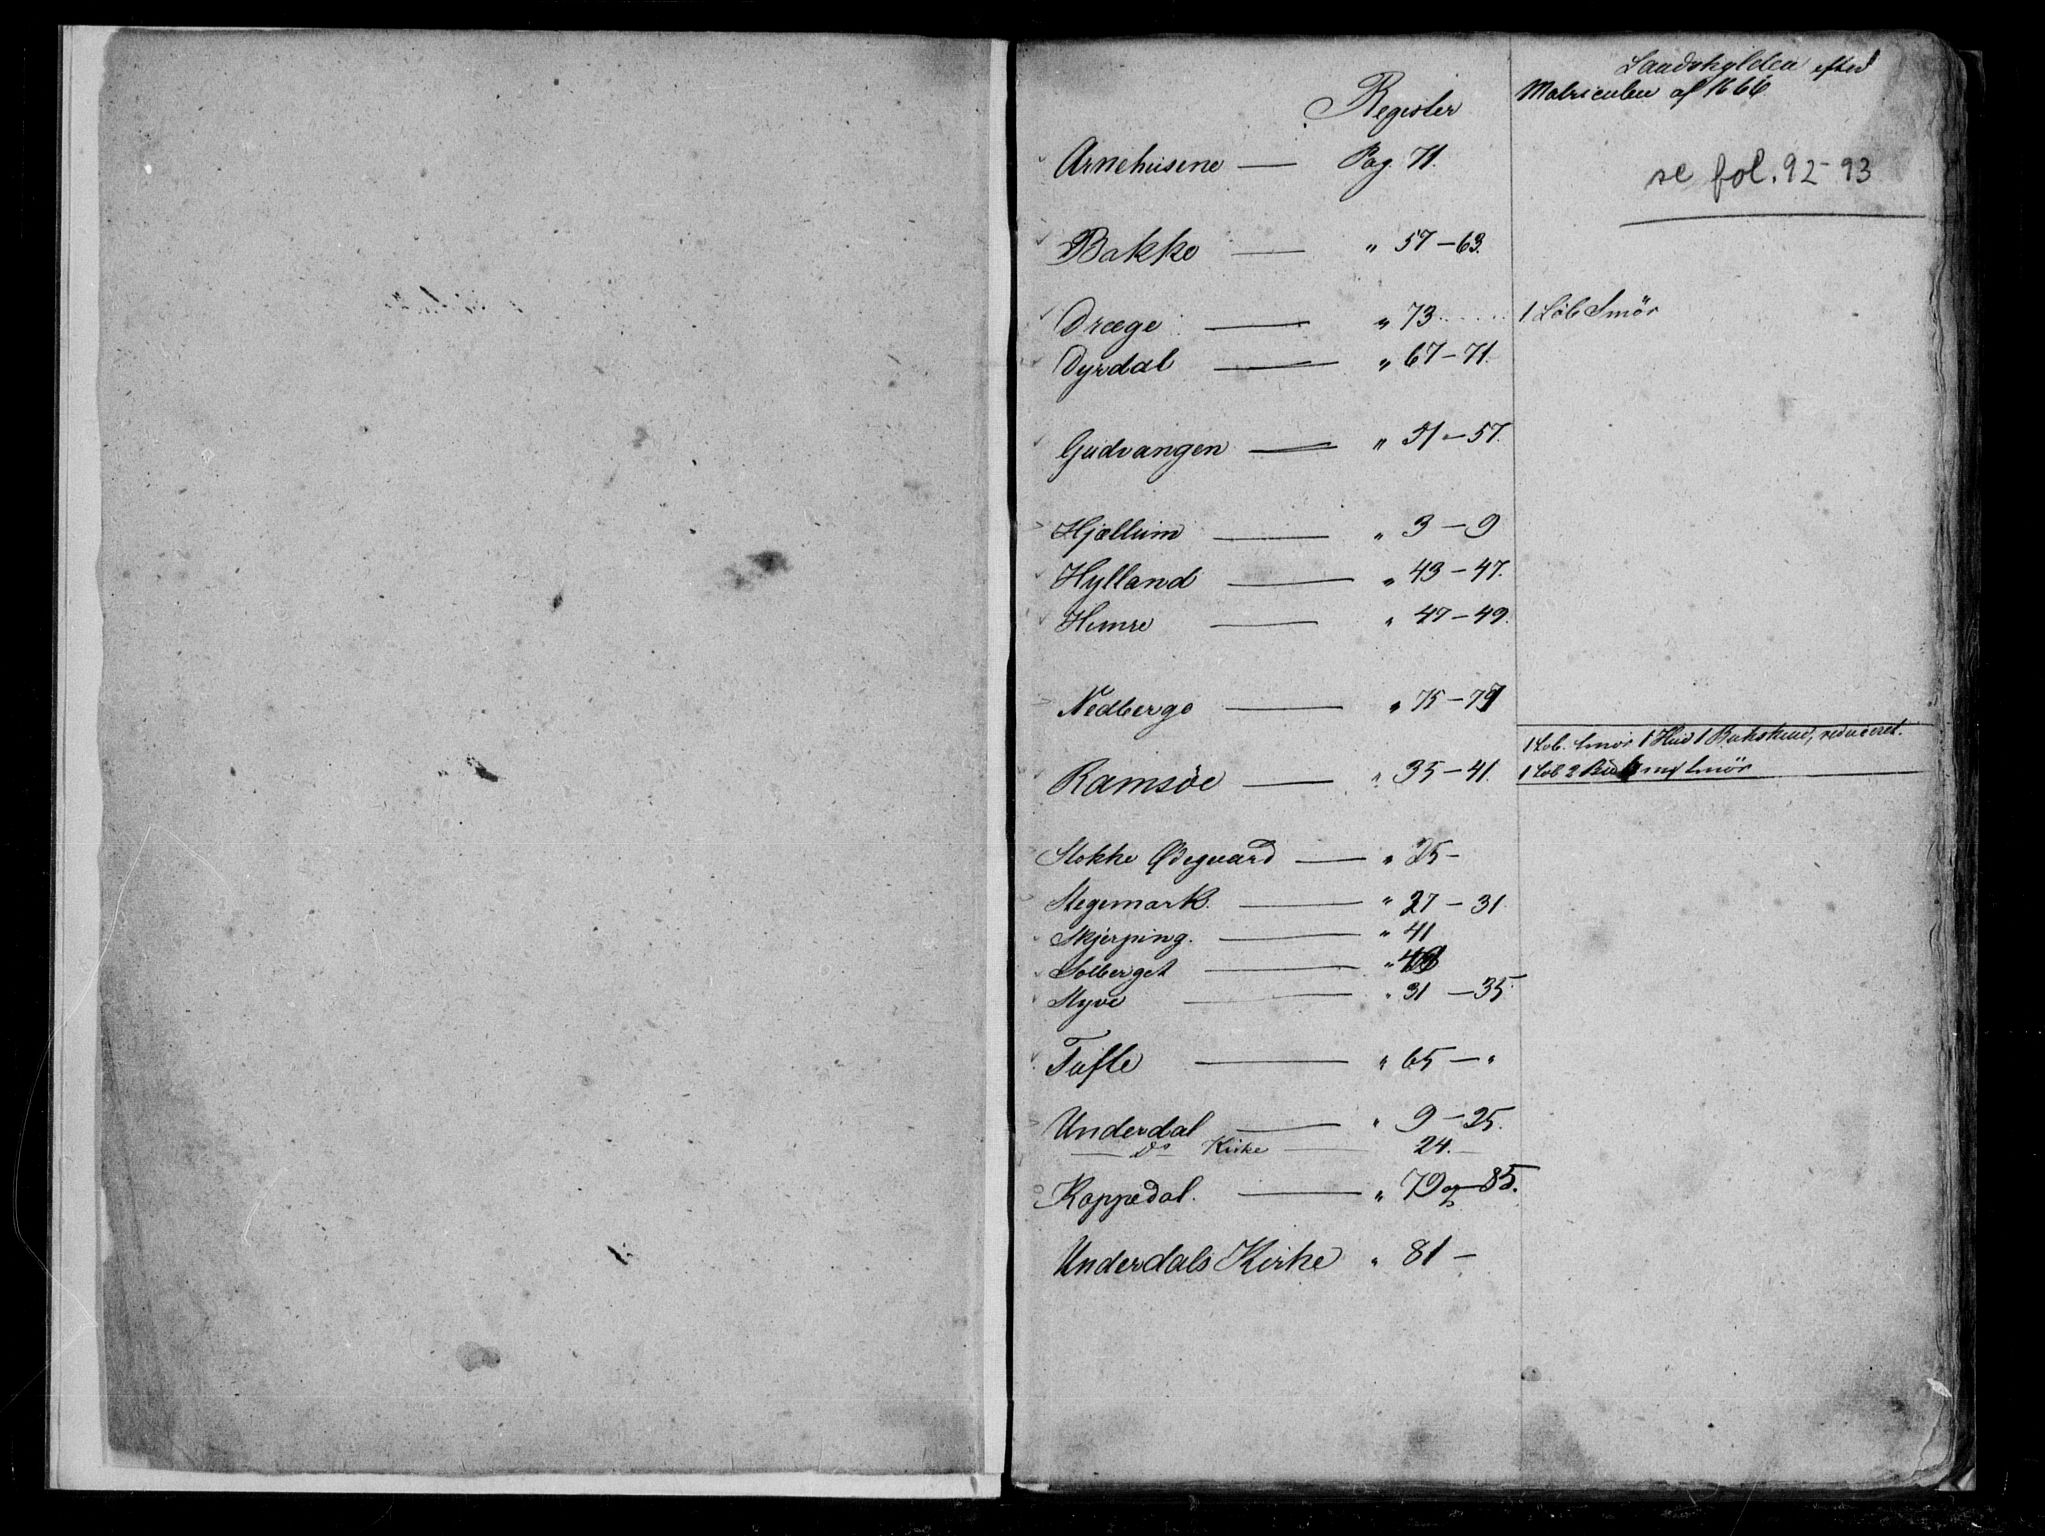 Landskylden efter
Matriculen af 1666
Register
se fol. 92-93
Arnehusene — Pag. 71.
Bakke — " 57-63.
Dræge — " 73 ..... 1 Løb Smör
Dyrdal — " 67-71.
Gudvangen — " 51-57.
Hjællum — " 3-9
Hylland — " 43-47.
Hemre — " 47-49.
Nedberge — " 75-79
1 Løb. Smör 1 Hud 1 Bukskind, reduceret.
Ramsöe — " 35-41. 1 Løb 2 mk Smör
Stokke Ødegaard — " 25-
Stegemark. — " 27-31
Skjerping. — " 41
Solberget — " 49
Styve — " 31-35.
Tufte — " 65-"
Underdal — " 9-25.
— do Kirke — 24.-
Koppedal. — " 79 og 85.
Underdals Kirke " 81-